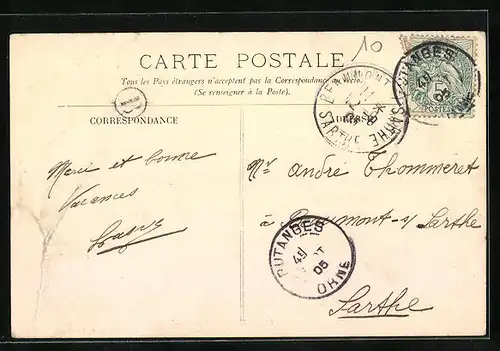 10
CARTE POSTALE
Tous les Pays étrangers n'acceptent pas la Correspondance au recto.
(Se renseigner à la Poste).
CORRESPONDANCE
ADRESSE
BEAUMONT-S-SARTHE
SARTHE
PUTANGES
4
05
ORNE
POSTES
Merci et bonne
Vacances
Mr André Thommeret
à Beaumont-s/ Sarthe
Sarthe
PUTANGES
4
05
ORNE